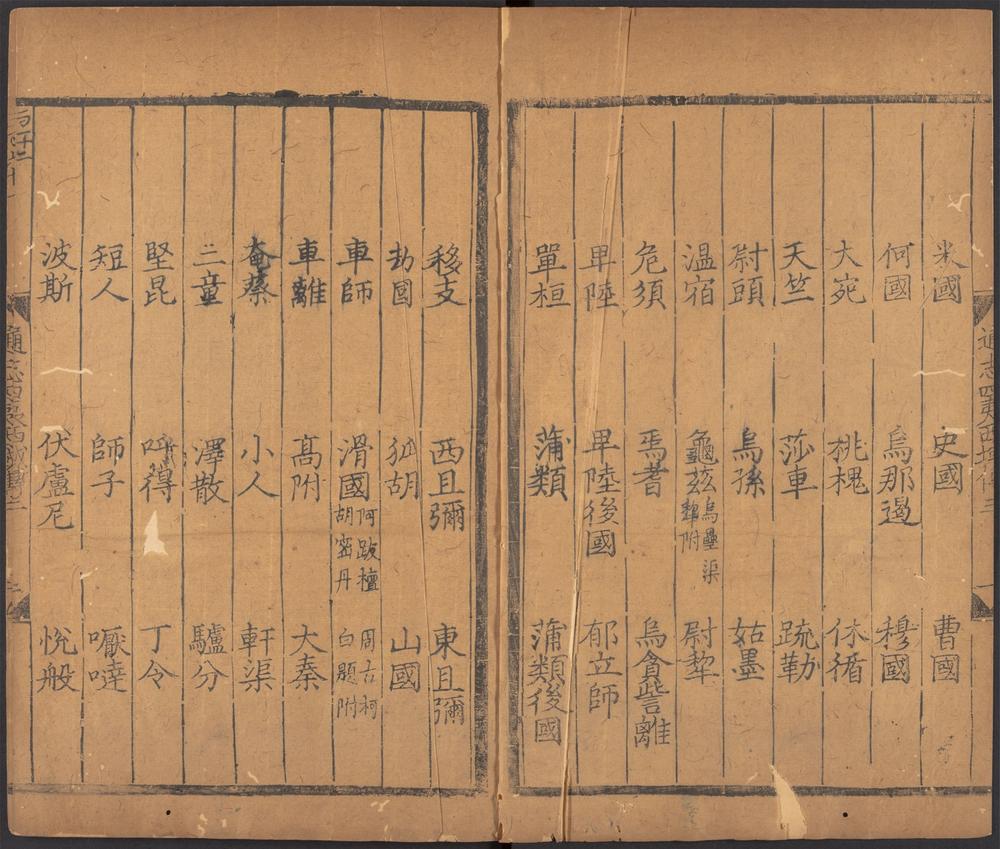 米國 史國 曹國
何國 烏那遏 穆國
大宛 桃槐 休循
天竺 莎車 疏勒
尉頭 烏孫 姑墨
温宿 龜茲 烏壘渠犂附 尉犂
危須 焉耆 烏貪訾離
卑陸 卑陸後國 郁立師
單桓 蒲類 蒲類後國
移支 西且彌 東且彌
劫國 狐胡 山國
車師 滑國 阿跋檀 周古柯 胡密丹 白題附
車離 高附 大秦
奄蔡 小人 軒渠
三童 澤散 驢分
堅昆 呼得 丁令
短人 師子 嚈噠
波斯 伏盧尼 悅般
通志四夷西域傳三